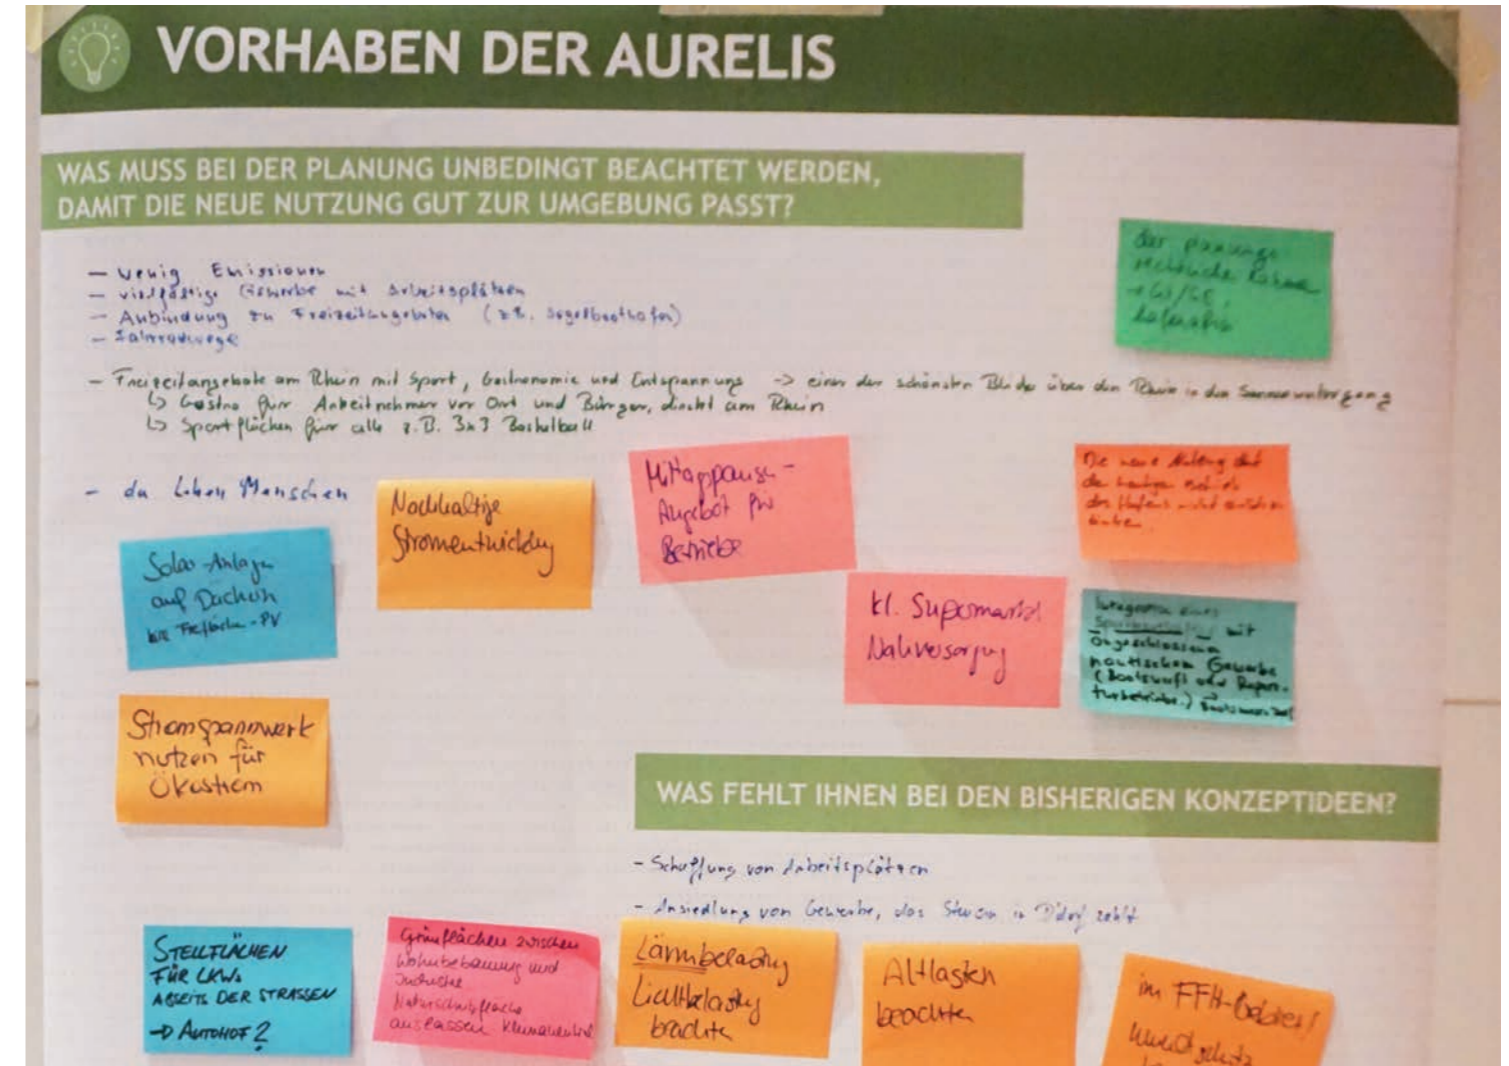 VORHABEN DER AURELIS
WAS MUSS BEI DER PLANUNG UNBEDINGT BEACHTET WERDEN,
DAMIT DIE NEUE NUTZUNG GUT ZUR UMGEBUNG PASST?
der planungs
rechtliche Rahmen
→ GI/GE,
– wenig Emissionen
– vielfältige Gewerbe mit Arbeitsplätzen
– Anbindung zu Freizeitangeboten (z.B. Segelboothafen)
– Fahrradwege
– Freizeitangebote am Rhein mit Sport, Gastronomie und Entspannung -> einer der schönsten Blicke über den Rhein in den Sonnenuntergang
↳ Gastro für Arbeitnehmer vor Ort und Bürger, direkt am Rhein
↳ Sportflächen für alle z.B. 3x3 Basketball
– da leben Menschen
Nachhaltige
Stromentwicklung
Mittagspause-
Angebot für
Betriebe
Die neue Nutzung darf
des Hafens nicht
Solar-Anlagen
auf Dächern
wie Freifläche-PV
kl. Supermarkt
Nahversorgung
Integration eines
mit
angeschlossenem
nautischem Gewerbe
(Bootswerft oder Repara-
turbetriebe.)
Stromspannwerk
nutzen für
Ökostrom
WAS FEHLT IHNEN BEI DEN BISHERIGEN KONZEPTIDEEN?
– Schaffung von Arbeitsplätzen
– Ansiedlung von Gewerbe, das Steuern in D'dorf zahlt
STELLFLÄCHEN
FÜR LKWs
ABSEITS DER STRASSEN
→ AUTOHOF?
Grünflächen zwischen
Wohnbebauung und
Industrie
Naturschutzfläche
auslassen
Lärmbelastung
Lichtbelastung
beachten
Altlasten
beachten
im FFH-Gebiet!